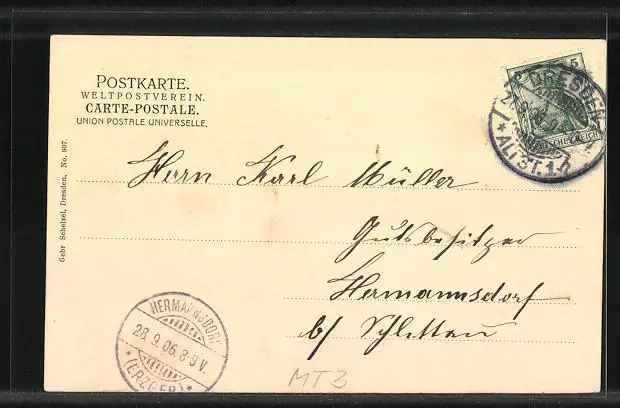 POSTKARTE.
WELTPOSTVEREIN.
CARTE-POSTALE.
UNION POSTALE UNIVERSELLE.
Gebr Scheizel, Dresden, No. 807.
5
DRESDEN
* ALTST. 1.
Herrn Karl Müller
Gutsbesitzer
Hermannsdorf
b/ Schlettau
HERMANNSDORF
28.9.06.8-9V.
* (ERZGEB.) *
MTB